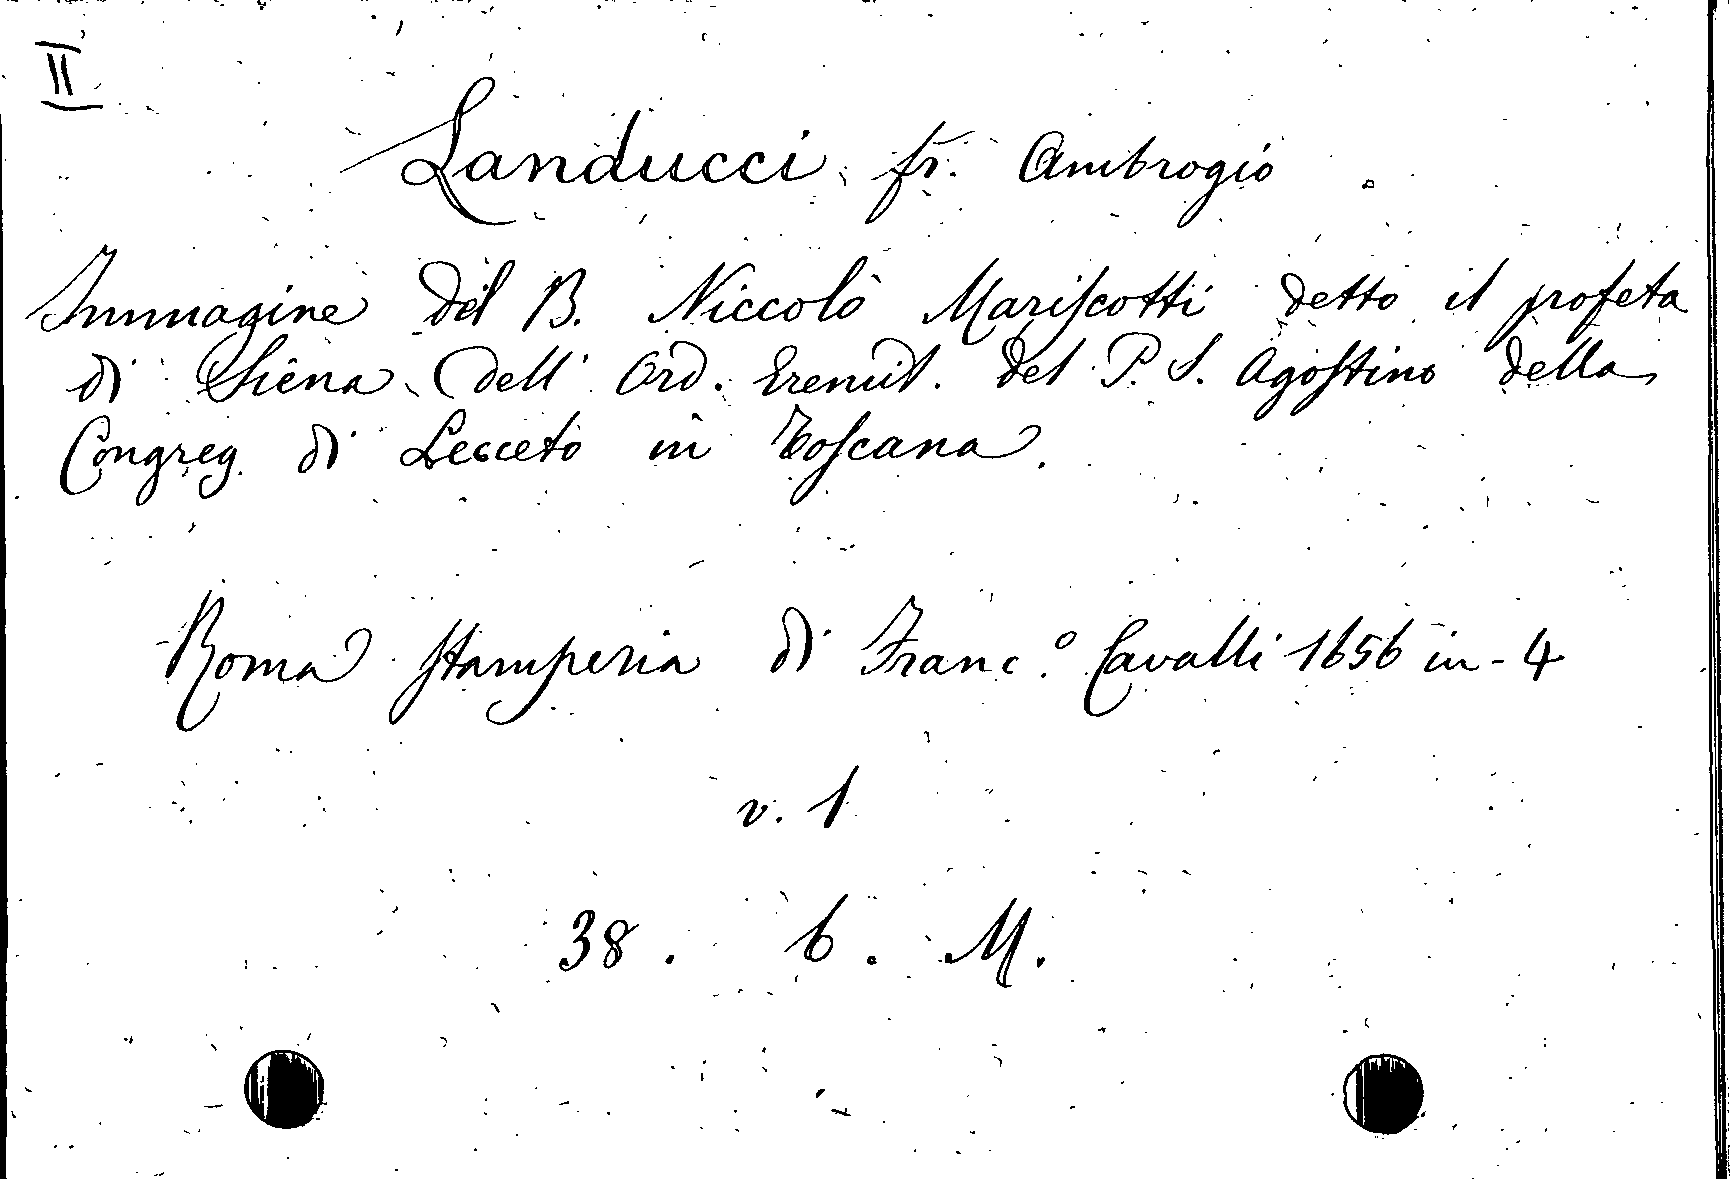 II
Landucci fr. Ambrogio
Immagine del B. Niccolò Mariscotti detto il profeta
di Siena dell' Ord. Eremit. del P. S. Agostino della
Congreg. di Lecceto in Toscana.
Roma stamperia di Franc.º Cavalli 1656 in-4
v. 1
38. 6. M.